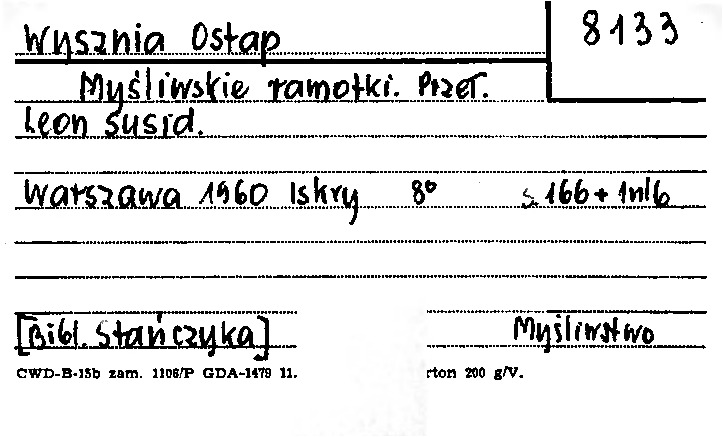 Wysznia Ostap
8133
Myśliwskie ramotki. Przeł.
Leon Susid.
Warszawa 1960 Iskry 8° s. 166 + 1nlb
[Bibl. Stańczyka]
Myśliwstwo
CWD-B-15b zam. 1106/P GDA-1479 11.
rton 200 g/V.